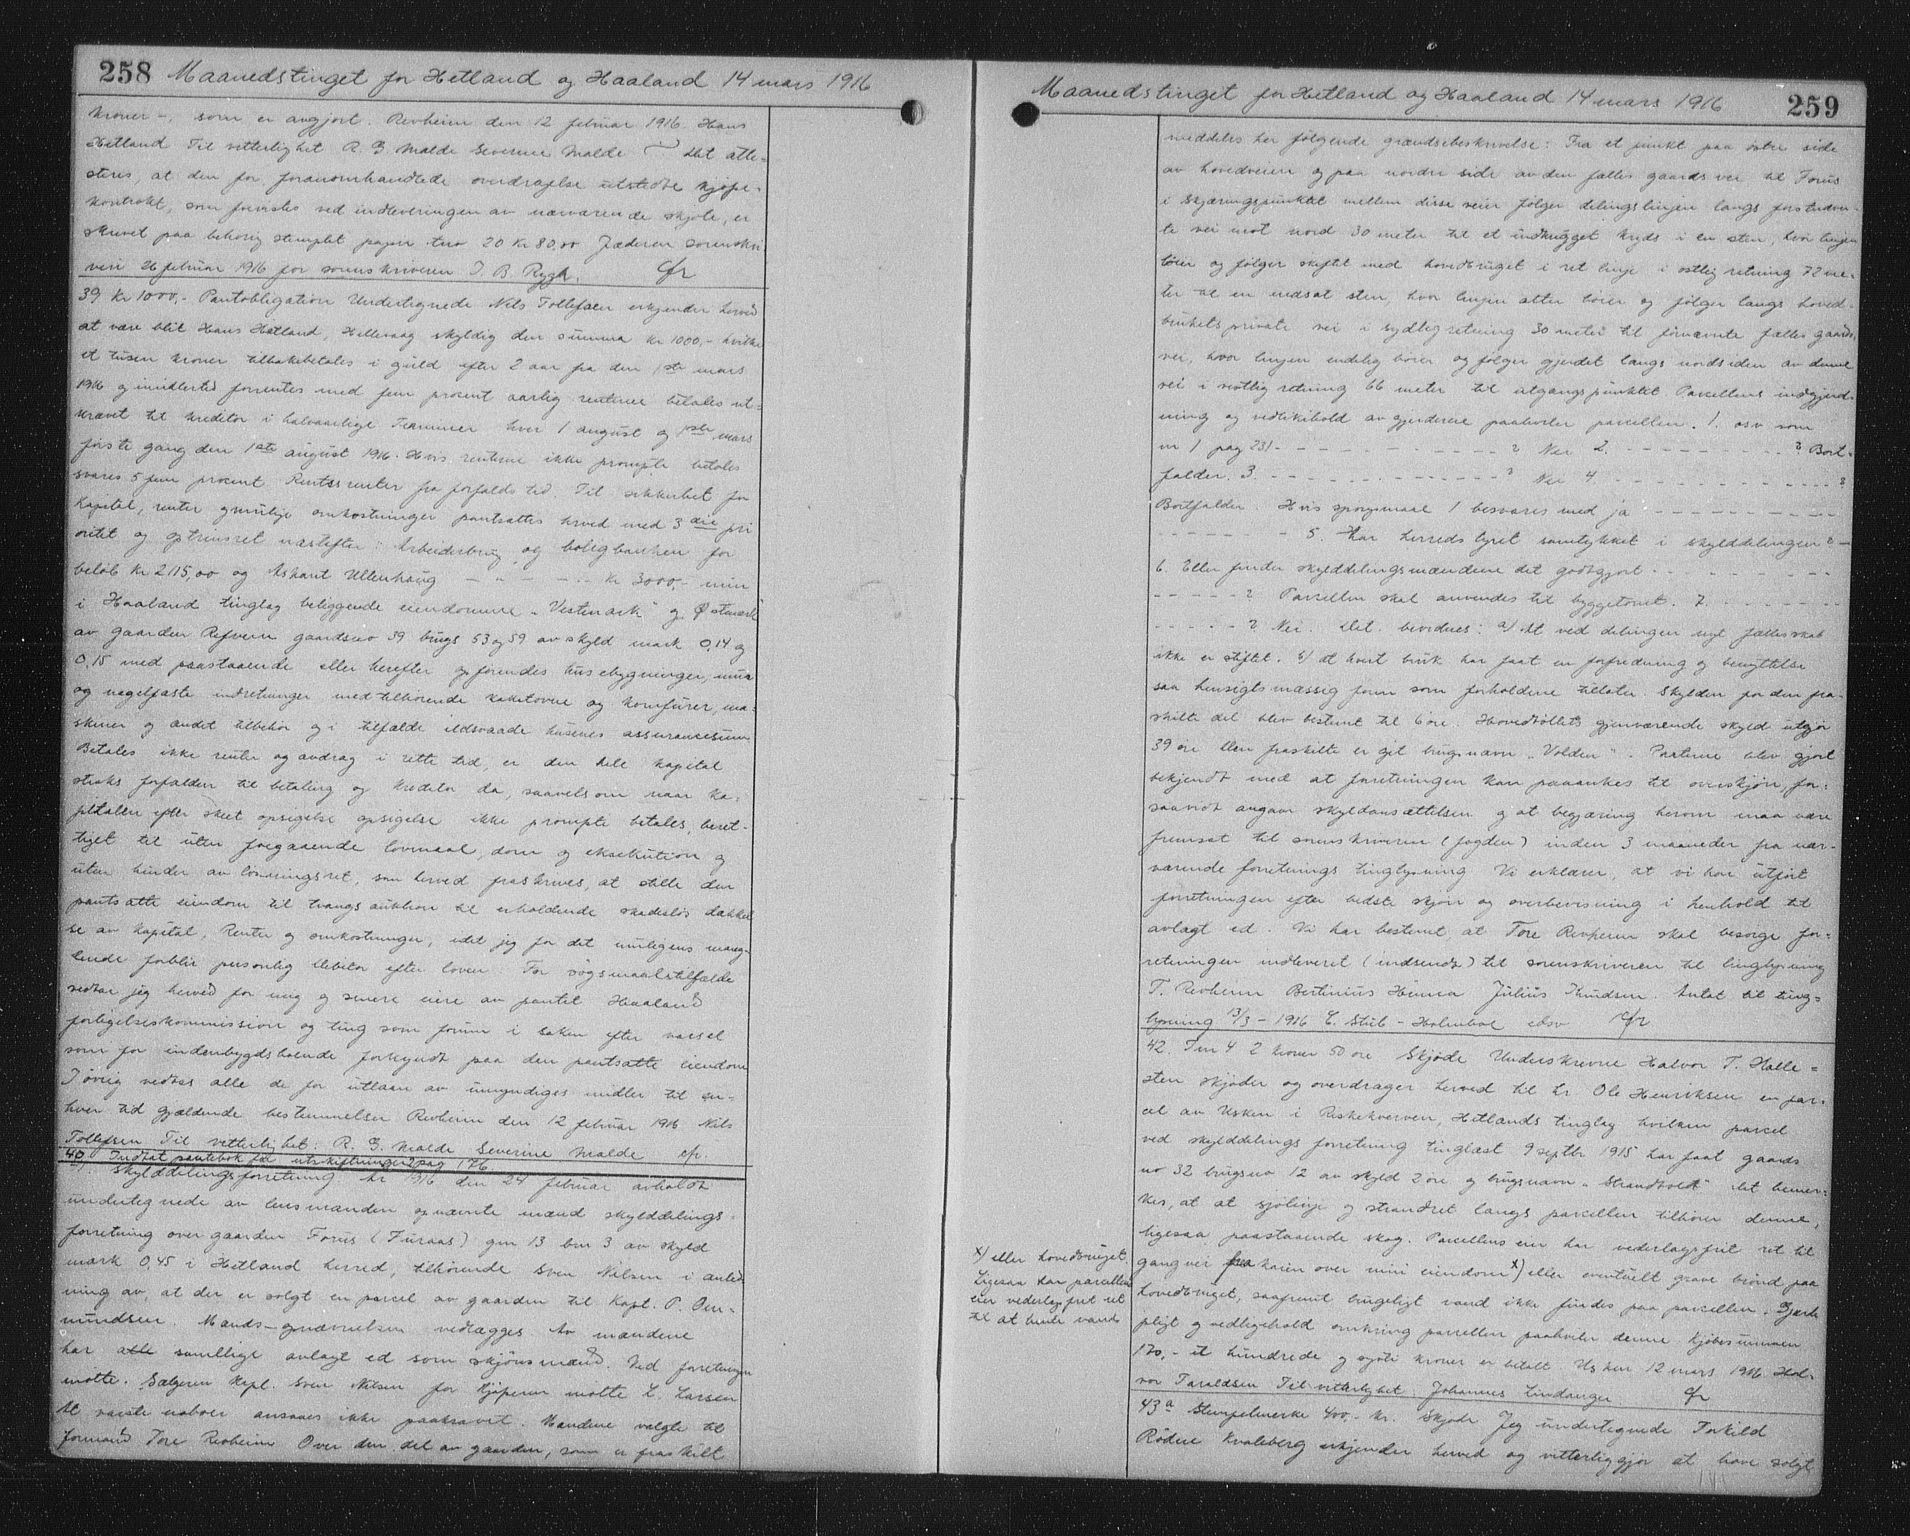 258 Maanedstinget for Hetland og Haaland 14 mars 1916
kroner -, som er avgjort. Revheim den 12 februar 1916. Hans
Hetland Til vitterlighet R. G. Malde Severine Malde Det atte-
steres, at den for foranomhandlede overdragelse utstedte kjøpe-
kontrakt, som forevistes ved indleveringen av nærværende skjøte, er
skrevet paa behørig stemplet papir 20 Kr 80,00 Jæderen sorenskri
veri 26 februar 1916 for sorenskriveren J. B. Rygh. Cfr
39 Kr 1000,- Pantobligation Undertegnede Nils Tollefsen erkjender herved
at være blit Hans Hetland, Hellevaag skyldig den summa kr 1000,- hvilke
et tusen kroner tilbakebetales i guld efter 2 aar fra den 1ste mars
1916 og imidlertid forrentes med fem procent aarlig renterne betales ut-
krævet til kreditor i halvaarlige Terminer hver 1 august og 1ste mars
første gang den 1ste august 1916. Hvis renterne ikke prompte betales
svares 5 fem procent Rentesrenter fra forfaldstid. Til sikkerhet for
kapital, renter og mulige omkostninger pantsættes herved med 3die pri
oritet og optrinsret næstefter: Arbeiderbruk og boligbanken for
beløb kr 2115,00 og Askant Ullenhaug - " - - - kr 3000,- min
i Haaland tinglag beliggende eiendomme "Vestmark" og Østmark
av gaarden Refveim gaardsno 39 brugs 53 og 59 av skyld mark 0,14 og
0,15 med paastaaende eller herefter opførendes husebygninger, mur
og nagelfaste indretninger med tilhørende kakelovne og komfurer, ma-
skiner og andet tilbehør og i tilfælde ildsvaade husenes assurancesum
Betales ikke renter og avdrag i rette tid, er den hele kapital
straks forfalden til betaling og kreditor da, saavelsom naar ka-
pitalen efter skeet opsigelse opsigelse ikke prompte betales, beret-
tiget til uten foregaaende lovmaal, dom og eksekution og
uten hinder av løsningsret, som herved fraskrives, at stille den
pantsatte eiendom til tvangsauktion til erholdende skadesløs dækkel
se av kapital, Renter og omkostninger, idet jeg for det muligens mang-
lende forblir personlig debitor efter loven. For søgsmaalstilfælde
vedtar jeg herved for mig og senere eiere av pantet Haaland
forligelseskommission og ting som forum i saken efter varsel
som for indenbygdsboende forkyndt paa den pantsatte eiendom
I øvrig vedtas alle de for utlaan av umyndiges midler til en-
hver tid gjældende bestemmelser Revheim den 12 februar 1916 Nils
Tollefsen Til vitterlighet: R. G. Malde Severine Malde cfr.
40 Indtat pantebok for utskiftninger 2 pag 176
41. Skylddelingsforretning Aar 1916 den 24 februar avholdt
undertegnede av lensmanden opnævnte mænd skylddelings-
forretning over gaarden Forus (Furaas) gnr 13 bnr 3 av skyld
mark 0,45 i Hetland herred, tilhørende Sven Nilsen i anled
ning av, at der er solgt en parcel av gaarden til Kapt. P. Om-
mundsen. Mands-opnævnelsen vedlægges Av mændene
har alle samtlige avlagt ed som skjønsmænd. Ved forretningen
møtte. Sælgeren Kapt. Sven Nilsen for kjøperen møtte L. Larsen
At varsle naboer ansaaes ikke paakrævet. Mændene valgte til
formand Tore Revheim Over den del av gaarden, som er fraskilt
Maanedstinget for Hetland og Haaland 14 mars 1916 259
meddeles her følgende grændsebeskrivelse: Fra et punkt paa østre side
av hovedveien og paa nordre side av den fælles gaardsvei til Forus
i skjæringspunktet mellem disse veier følger delingslinjen langs førstnævn-
te vei mot nord 30 meter til et indhugget kryds i en sten, hvor linjen
bøier og følger skiftet med hovedbruget i ret linje i østlig retning 72 me-
ter til en nedsat sten, hvor linjen atter bøier og følger langs hoved-
brukets private vei i sydlig retning 30 meter til førnævnte fælles gaards-
vei, hvor linjen endelig bøier og følger gjerdet langs nordsiden av denne
vei i vestlig retning 66 meter til utgangspunktet. Parcellens indgjerd-
ning og vedlikehold av gjerderne paahviler parcellen. 1. osv som
nr 1 pag 231 - - - - - - - ? Nei 2. - - - - - - - ? Bort-
falder. 3. - - - - - - - ? Nei 4. - - - - - - - ?
Bortfalder. Hvis spørgsmaal 1 besvares med ja - - - - - -
- - - - - - 5. Har herredstyret samtykket i skylddelingen ? -
6. Eller finder skylddelingsmændene det godtgjort - - - - - -
- - - - - ? Parcellen skal anvendes til byggetomt. 7. - - - - -
- - - - - ? Nei. Det bevidnes: a) At ved delingen nyt fællesskab
ikke er stiftet. b) at hvert bruk har faat en forfredning og benyttelse
saa hensigtsmæssig form som forholdene tillater. Skylden for den fra-
skilte del blev bestemt til 6 øre. Hovedbølets gjenværende skyld utgjør
39 øre Den fraskilte er git brugsnavn "Volden". Parterne blev gjort
bekjendt med at forretningen kan paaankes til overskjøn, for-
saavidt angaar skyldansættelsen og at begjæring herom maa være
fremsat til sorenskriveren (fogden) inden 3 maaneder fra nær-
værende forretnings tinglysning Vi erklærer, at vi har utført
forretningen efter bedste skjøn og overbevisning i henhold til
avlagt ed. Vi har bestemt, at Tore Revheim skal besørge for-
retningen indleveret (indsendt) til sorenskriveren til tinglysning
T. Revheim Bertinius Hinna Julius Knudsen. Antat til ting-
lysning 13/3 - 1916 E. Stub - Holmboe cbsv Cfr
42. Tm 4 2 kroner 50 øre Skjøde Underskrevne Halvor T. Halle-
sten skjøder og overdrager herved til hr Ole Henriksen en par-
cel av Usken i Riskekverven, Hetlands tinglag hvilken parcel
ved skylddelings forretning tinglæst 9 septbr 1915 har faat gaards
no 32 brugsno 12 av skyld 2 øre og brugsnavn "Strandvold" Det bemer-
kes, at at sjølinje og strandret langs parcellen tilhører denne,
ligesaa paastaaende skog. Parcellens eier har vederlagsfrit ret til
gangvei fra kaien over min eiendom x) eller eventuelt grave brønd paa
hovedbruget, saafremt brugeligt vand ikke findes paa parcellen. Gjærde
pligt og vedligehold omkring parcellen paahviler denne Kjøbesummen
170,- et hundrede og sytti kroner er betalt. Usken 12 mars 1916 Hal-
vor Taraldsen Til vitterlighet: Johannes Lindanger Cfr
x) eller hovedbruget.
Ligesaa har parcellens
eier vederlagsfrit ret
til at hente vand
43a Stempelmerke 400,- kr. Skjøde Jeg undertegnede Torkild
Rødne Kvaleberg erkjender herved og vitterliggjør at have solgt